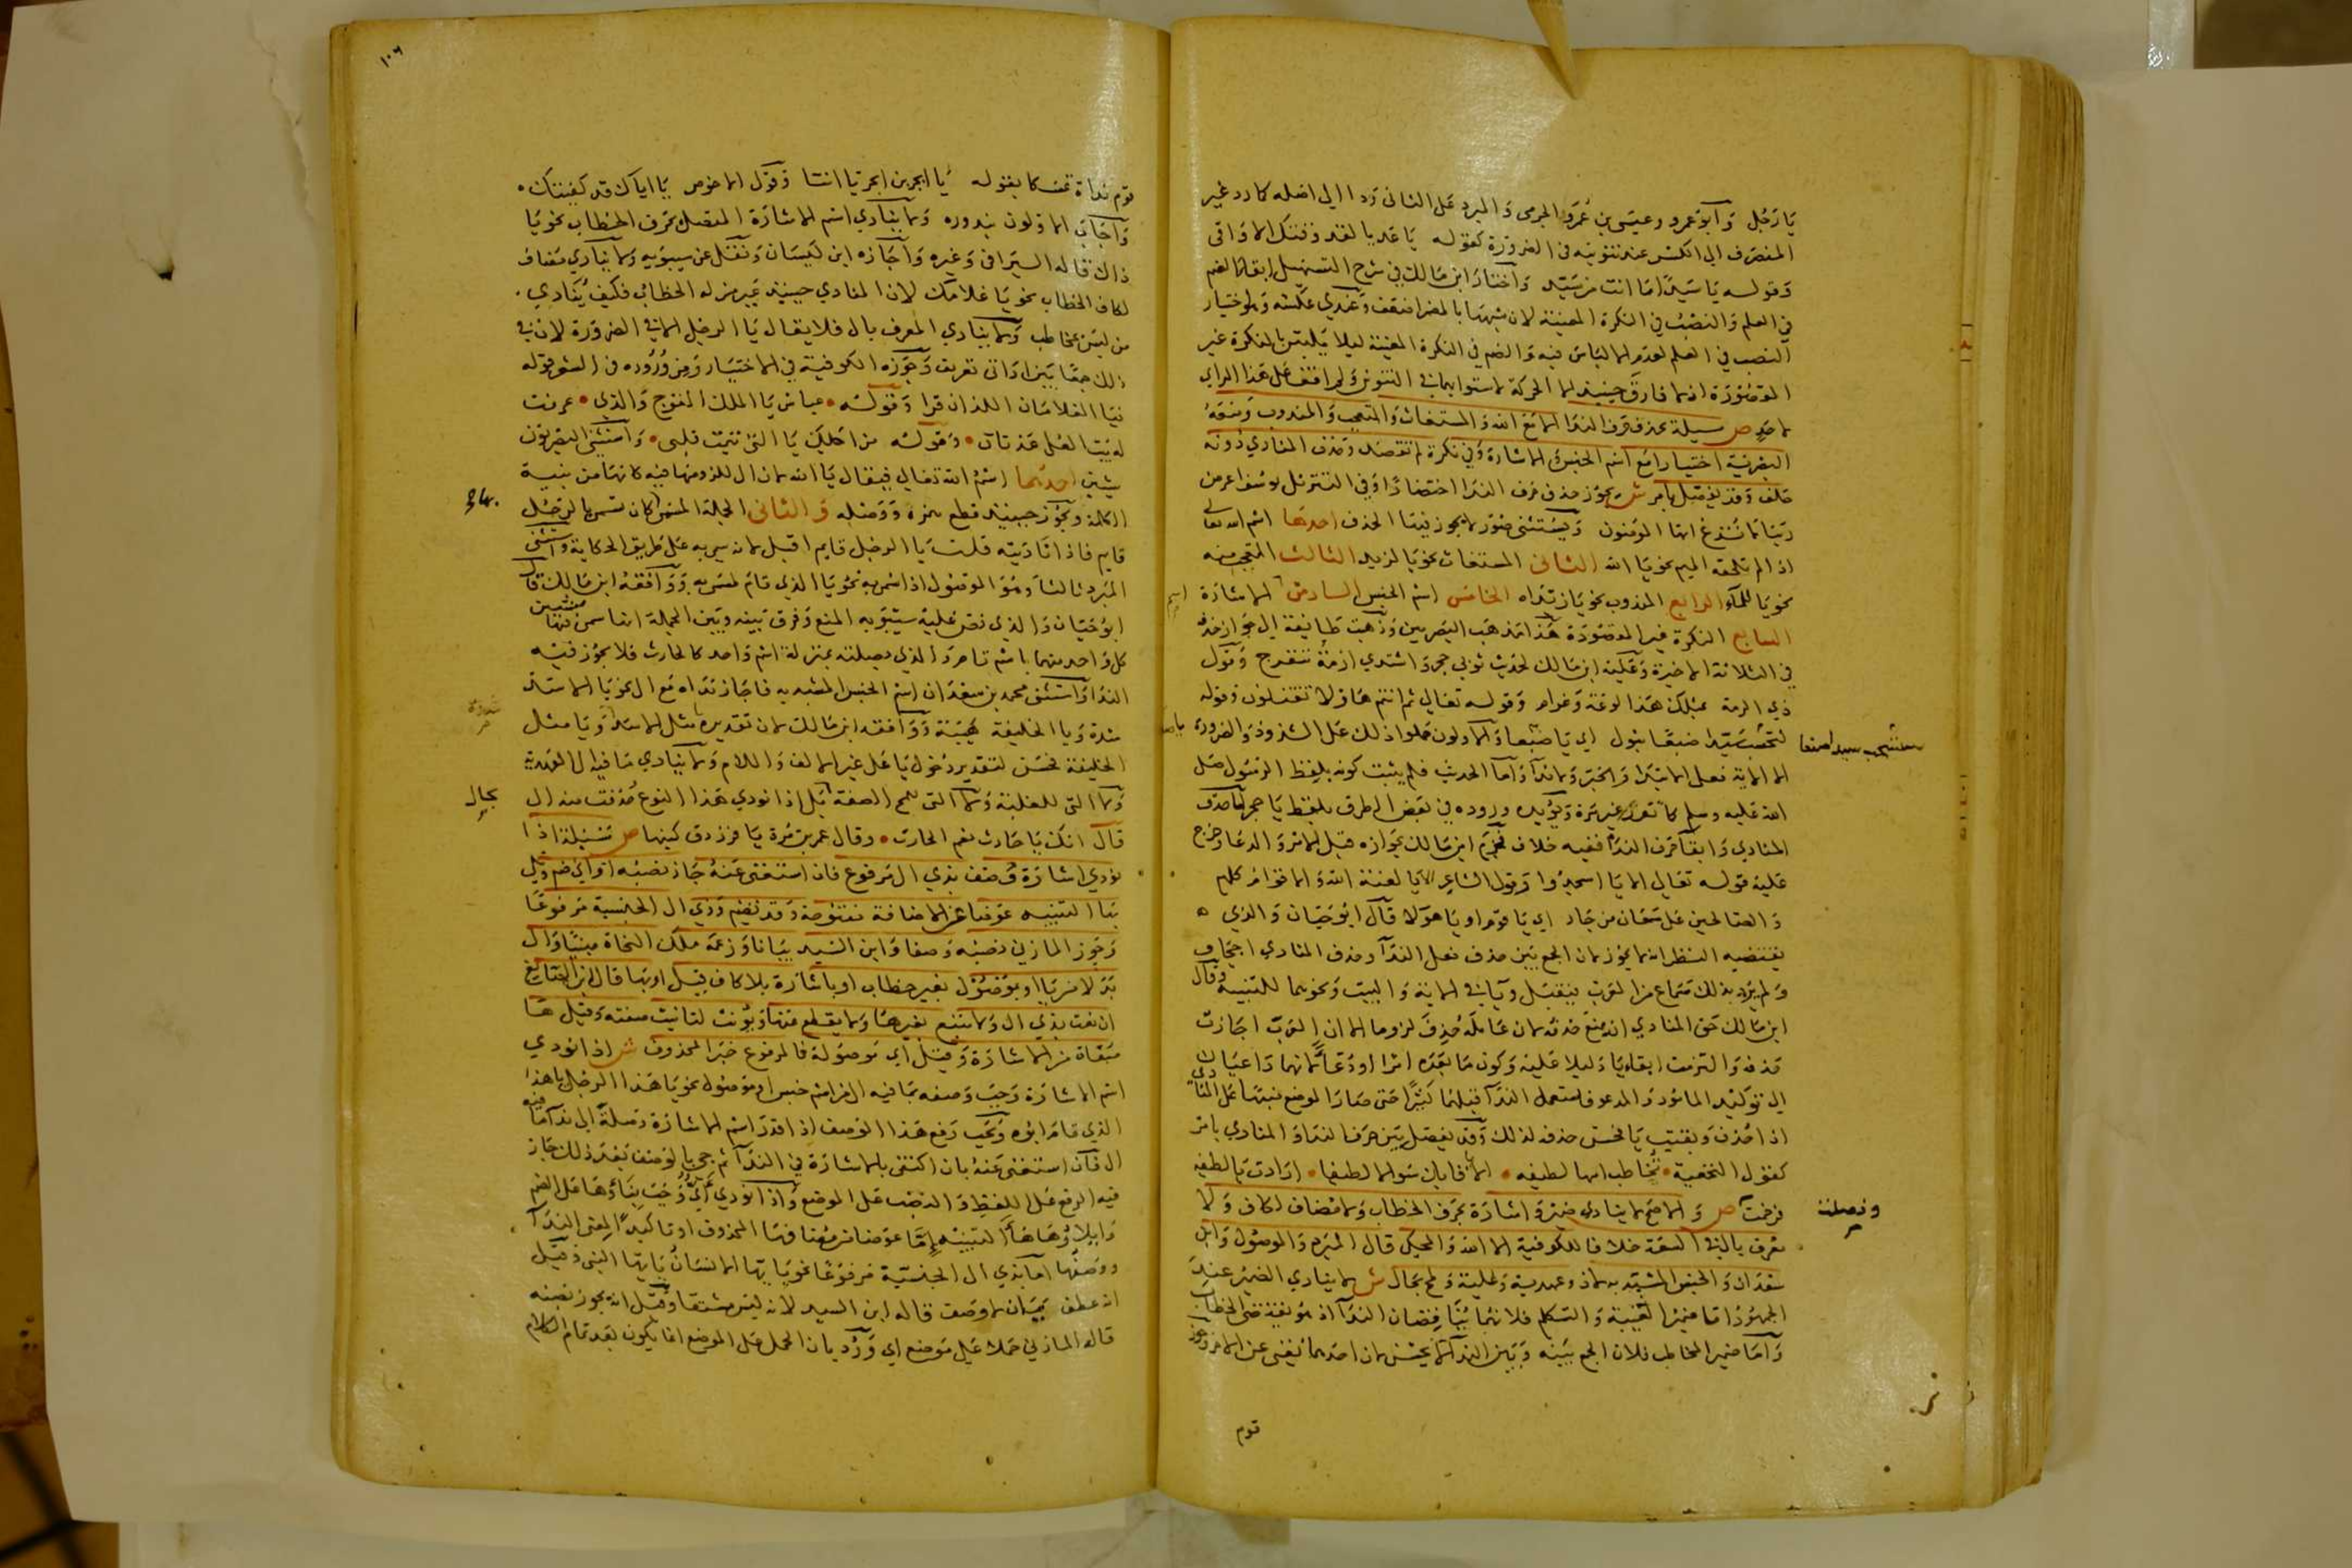 يا رجل وابو عمرو وعيسى بن عمر والجرمي والمبرد على الثاني ردا الى اصله كما رد غير
المنصرف الى الكسر عند تنوينه في الضرورة كقوله يا عديا لقد وقتك الاواقي
وقوله يا سيدا ما انت من سيد واختار ابن مالك في شرح التسهيل ابقا الضم
في العلم والنصب في النكرة المعينة لان شبهها بالمضمر اضعف وعندي عكسه وهو اختيار
النصب في العلم لعدم الالباس فيه والضم في النكرة المعينة ليلا يلتبس بالنكرة غير
المقصودة اذ لا فارق حينيذ الا الحركة لاستوايهما في التنوين ولم اقف على هذا الراي
لاحد ص مسيلة يحذف حرف الندا الا مع الله والمستغاث والمتعجب والمندوب ومنعه
البصرية اختيارا مع اسم الجنس والاشارة وفي نكرة لم تقصد وحذف المنادى دونه
خلف وقد يفصل بامر ش يجوز حذف حرف الندا اختصارا وفي التنزيل يوسف اعرض
ربنا لا تزغ ايها المومنون ويستثنى صور لا يجوز فيها الحذف احدها اسم الله تعالى
اذا لم تلحقه الميم نحو يا الله الثاني المستغاث نحو يا لزيد الثالث المتعجب منه
نحو يا للماء الرابع المندوب نحو يا زيداه الخامس اسم الجنس السادس الاشارة
اسم
السابع النكرة غير المقصودة هذا مذهب البصريين وذهبت طايفة الى جواز حذفه
في الثلاثة الاخيرة وعليه ابن مالك لحديث ثوبي حجر واشتدي ازمة تنفرجي وقول
ذي الرمة بمثلك هذا لوعة وغرام وقوله تعالى ثم انتم هاولا تقتلون وقوله
لتحسب سيدا ضبعا تبول اي يا ضبعا والاولون حملوا ذلك على الشذوذ والضرورة
الا الاية فعلى الابتدا والخبر ولا ندا واما الحديث فلم يثبت كونه بلفظ الرسول صلى
الله عليه وسلم كما تقرر غير مرة ويؤيده وروده في بعض الطرق بلفظ يا حجر اما حذف
المنادى وابقا حرف الندا ففيه خلاف فجزم ابن مالك بجوازه قبل الامر والدعا وخرج
عليه قوله تعالى الا يا اسجدوا وقول الشاعر الا يا لعنة الله والاقوام كلهم
والصالحين على سمعان من جار اي يا قوم او يا هولا قال ابو حيان والذي
يقتضيه النظر انه لا يجوز لان الجمع بين حذف فعل الندا وحذف المنادى اجحاف
ولم يرد بذلك سماع من العرب فيقبل ويا في الاية والبيت ونحوهما للتنبيه وقال
ابن مالك حق المنادى ان يمنع حذفه لان عامله حذف لزوما الا ان العرب اجازت
حذفه والتزمت ابقا يا دليلا عليه وكون ما بعده امرا او دعا لانهما داعيان
الى توكيد المامور والمدعو فاستعمل الندا قبلهما كثيرا حتى صار الموضع منبها على المنادى
اذا حذف وبقيت يا فحسن حذفه لذلك وقد يفصل بين حرف الندا والمنادى بامر
كقول النخعية تخاطب امها لطيفه الا يا فابك تهياما لطيفا ارادت يا لطيفة
فرخمت ص والاصح لا ينادى ضمير واشارة بحرف الخطاب ولا مضاف لكاف ولا
معرف بال في السعة خلافا للكوفية الا الله والمحكي قال المبرد والموصول وابن
سعدان والجنس المشبه به لا ذو عهدية وغلبة ولمح بحال ش لا ينادى الضمير عند
الجمهور اما ضمير الغيبة والتكلم فلانهما يناقضان الندا اذ هو يقتضي الخطاب
واما ضمير المخاطب فلان الجمع بينه وبين الندا لا يحسن لان احدهما يغني عن الاخر وجوز
قوم
١٠٦
قوم نداه تمسكا بقوله يا ابجر بن ابجر يا انتا وقول الاحوص يا اياك قد كفيتك
واجاب الاولون بندوره ولا ينادى اسم الاشارة المتصل بحرف الخطاب نحو يا
ذاك قاله السيرافي وغيره واجازه ابن كيسان ونقل عن سيبويه ولا ينادى مضاف
لكاف الخطاب نحو يا غلامك لان المنادى حينيذ غير من له الخطاب فكيف ينادى
من ليس بمخاطب ولا ينادى المعرف بال فلا يقال يا الرجل الا في الضرورة لان في
ذلك جمعا بين اداتي تعريف وجوزه الكوفية في الاختيار ومن وروده في الشعر قوله
فيا الغلامان اللذان فرا وقوله عباس يا الملك المتوج والذي عرفت
له بيت العلى عدنان وقوله من اجلك يا التي تيمت قلبي واستثنى البصريون
شيئين احدهما اسم الله تعالى فيقال يا الله لان ال للزومها فيه كانها من بنية
الكلمة ويجوز حينيذ قطع همزه ووصله والثاني الجملة المسمى بها كان تسمى بالرجل
قايم فاذا ناديته قلت يا الرجل قايم اقبل لانه سمي به على طريق الحكاية واستثنى
المبرد ثالثا وهو الموصول اذا سمي به نحو يا الذي قام لمسمى به ووافقه ابن مالك قال
ابو حيان والذي نص عليه سيبويه المنع وفرق بينه وبين الجملة انها سمي منها بشيين
كل واحد منهما اسم تام والذي بصلته بمنزلة اسم واحد كالحارث فلا يجوز فيه
الندا واستثنى محمد بن سعدان اسم الجنس المشبه به فاجاز نداه مع ال نحو يا الاسد
شدة ويا الخليفة هيبة ووافقه ابن مالك لان تقديره يا مثل الاسد ويا مثل
الخليفة فحسن لتقدير دخول يا على غير الالف واللام ولا ينادى ما فيه ال العهدية
ولا التي للغلبة ولا التي للمح الصفة بل اذا نودي هذا النوع حذفت منه ال
بحال
قال انك يا حارث نعم الحارث وقال غمر بن مرة يا فرزدق كينها ص مسيلة اذا
نودي اشارة وصف بذي ال مرفوع فان استغنى عنه جاز نصبه او اي ضم وتلي
بها التنبيه عوضا عن الاضافة مفتوحة وقد تضم وذي ال الجنسية مرفوعا
وجوز المازني نصبه وصفا وابن السيد بيانا وزعمه ملك النحاة مبنيا وال
بدلا من يا او بموصول بغير خطاب او باشارة بلا كاف قيل او بها قال ابن الصايغ
ان نعت بذي ال ولا تتبع بغيرها ولا يقطع عنها ويونث لتانيث صفته وقيل ها
مبقاة من الاشارة وقيل اي موصولة فالمرفوع خبر لمحذوف ش اذا نودي
اسم الاشارة وجب وصفه بما فيه ال من اسم جنس او موصول نحو يا هذا الرجل يا هذا
الذي قام ابوه ويجب رفع هذا الوصف اذا قدر اسم الاشارة وصلة الى ندا ما فيه
ال فان استغنى عنه بان اكتفي بالاشارة في الندا ثم جي بالوصف بعد ذلك جاز
فيه الرفع على اللفظ والنصب على الموضع واذا نودي اي وجب بناؤها على الضم
وايلاؤها ها التنبيه اما عوضا من مضافها المحذوف او تاكيدا لمعنى الندا
ووصفها اما بذي ال الجنسية مرفوعا نحو يا ايها الانسان يا ايها النبي وقيل
انه عطف بيان لا وصف قاله ابن السيد لانه ليس مشتقا وقيل انه يجوز نصبه
قاله المازني حملا على موضع اي ورد بان الحمل على الموضع انما يكون بعد تمام الكلام